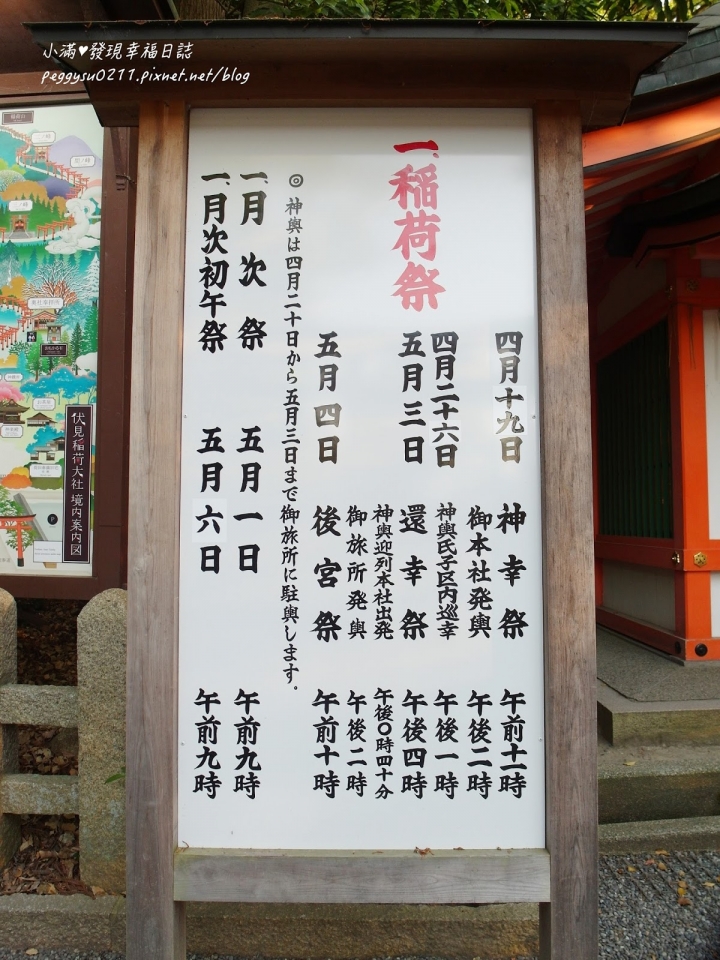 小滿♥發現幸福日誌
peggysu0211.pixnet.net/blog
一、稲荷祭
四月十九日 神幸祭 午前十一時
御本社発輿 午後二時
四月二十六日 神輿氏子区内巡幸 午後一時
五月三日 還幸祭 午後四時
神輿迎列本社出発 午後〇時四十分
御旅所発輿 午後二時
五月四日 後宮祭 午前十時
◎神輿は四月二十日から五月三日まで御旅所に駐輿します。
一、月次祭 五月一日 午前九時
一、月次初午祭 五月六日 午前九時
伏見稲荷大社 境内案内図